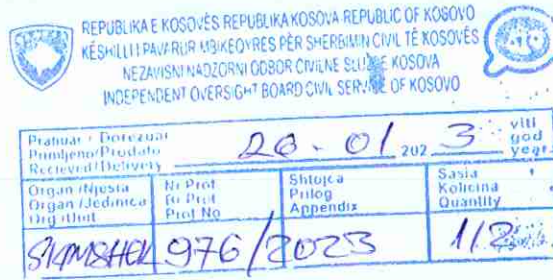 REPUBLIKA E KOSOVËS REPUBLIKA KOSOVA REPUBLIC OF KOSOVO
KËSHILLI I PAVARUR MBIKËQYRËS PËR SHERBIMIN CIVIL TË KOSOVËS
NEZAVISNI NADZORNI ODBOR CIVILNE SLUŽBE KOSOVA
INDEPENDENT OVERSIGHT BOARD CIVIL SERVICE OF KOSOVO
Pranuar / Dorëzuar
Primljeno/Predato
Recieved/Delivery
26 - 01 202 3
viti
god
year
Organ /Njësia
Organ /Jedinica
Org /Unit
Nr Prot
Br Prot
Prot No
Shtojca
Prilog
Appendix
Sasia
Kolicina
Quantity
976/2023
1/2